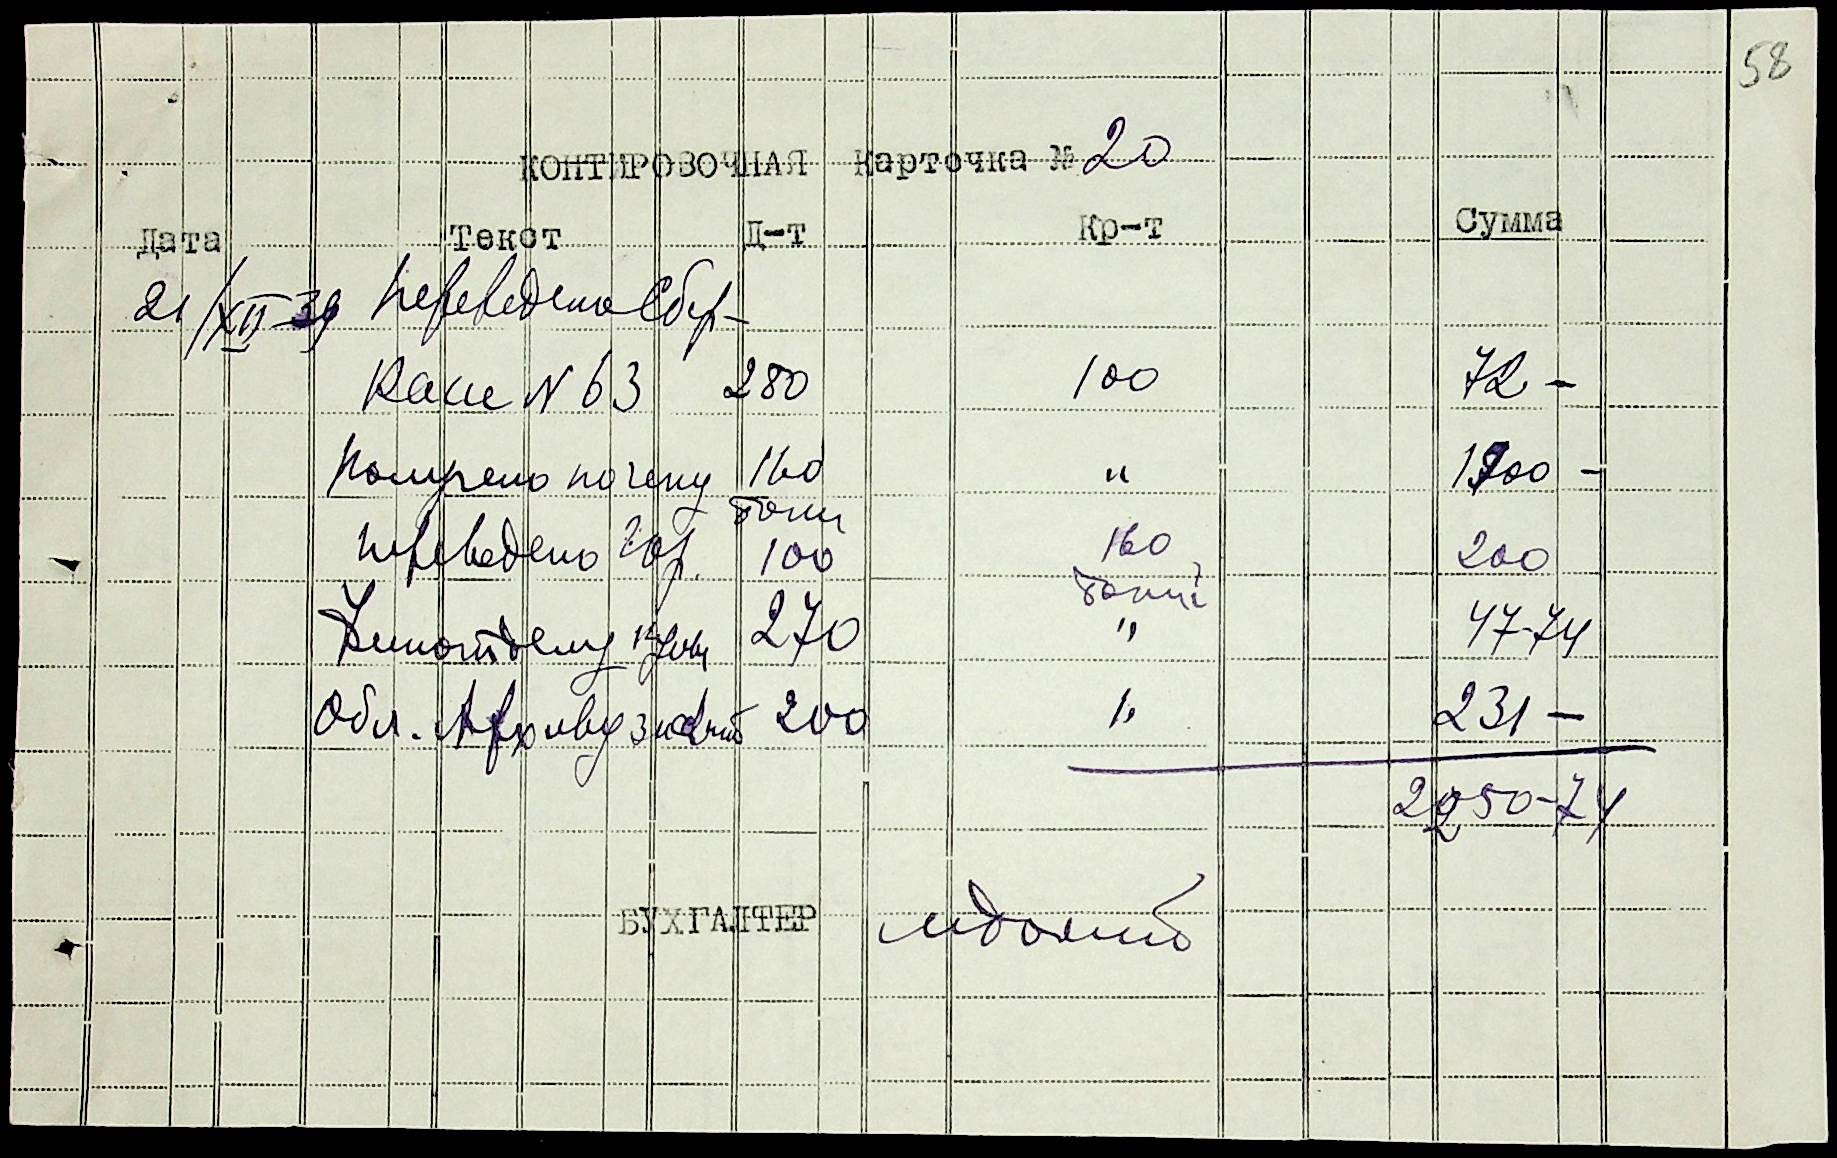 58
КОНТИРОВОЧНАЯ Карточка № 20
Дата Текст Д-т Кр-т Сумма
21/XII-39 Переведено Сбер-
Касе N 63 280 100 72 -
Получено по чеку 160 " 1700 -
банк
Переведено Гор. 100 160 200
банк
270 " 47-74
Обл. Архиву 200 " 231 -
2250-74
БУХГАЛТЕР